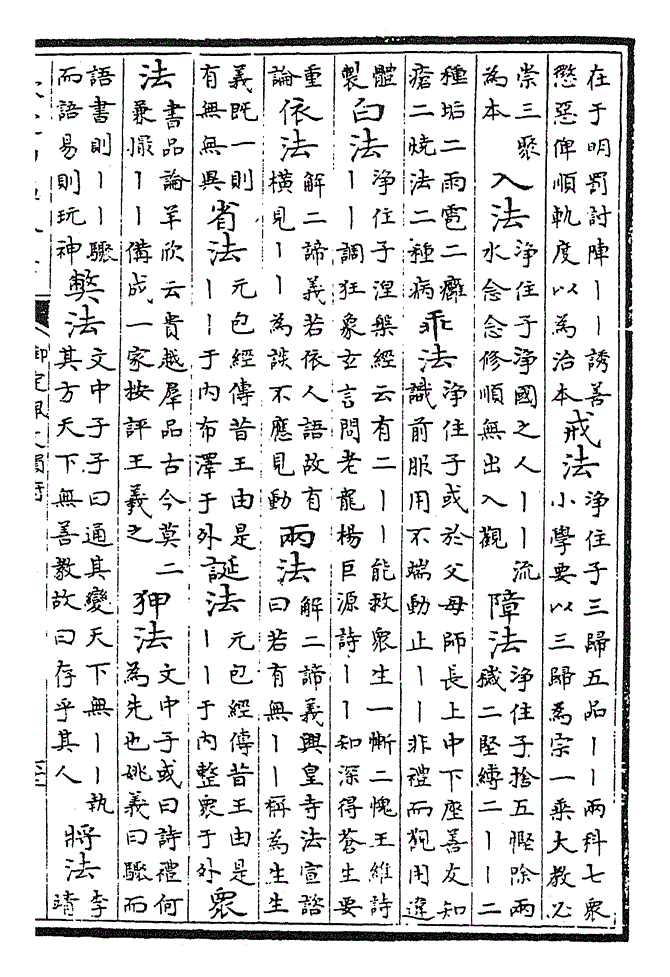 在于明罰討陣丨丨誘善懲惡俾順軌度以為治本戒法淨住子三歸五品丨丨兩科七衆小學要以三歸為宗一乘大教必
崇三聚為本入法淨住子淨國之人丨丨流水念念修順無出入觀障法淨住子捨五慳除兩穢二堅縛二丨丨二
種垢二雨雹二癰瘡二燒法二種病乖法淨住子或於父母師長上中下座善友知識前服用不端動止丨丨非禮而用違
體製白法淨住子涅槃經云有二丨丨能救衆生一慚二愧王維詩丨丨調狂象玄言問老龍楊巨源詩丨丨知深得蒼生要
重論依法解二諦義若依人語故有橫見丨丨為談不應見動兩法解二諦義興皇寺法宣諮曰若有無丨丨稱為生生
義既一則有無無異省法元包經傳昔王由是丨丨于内布澤于外誕法元包經傳昔王由是丨丨于内整衆于外衆
法書品論羊欣云貴越羣品古今莫二兼撮丨丨備成一家按評王羲之狎法文中子或曰詩禮何為先也姚義曰驟而
語書則丨丨驟而語易則玩神弊法文中子子曰通其變天下無丨丨執其方天下無善教故曰存乎其人將法李靖
御定佩文韻府